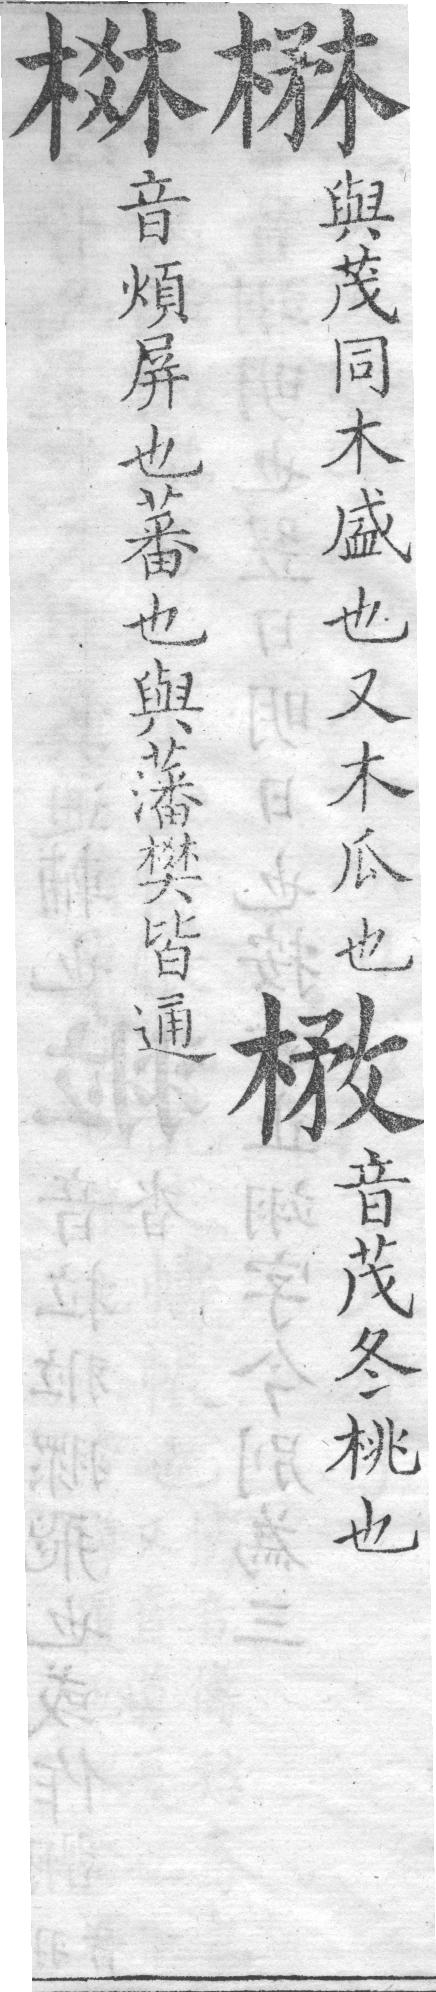 楙與茂同木盛也又木瓜也𣔺音茂冬桃也
棥音煩屏也蕃也與藩樊皆通